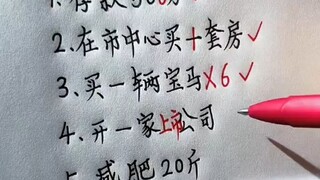 1.存款
2.在市中心买十套房✓
3.买一辆宝马X6✓
4.开一家上市公司
5.减肥20斤